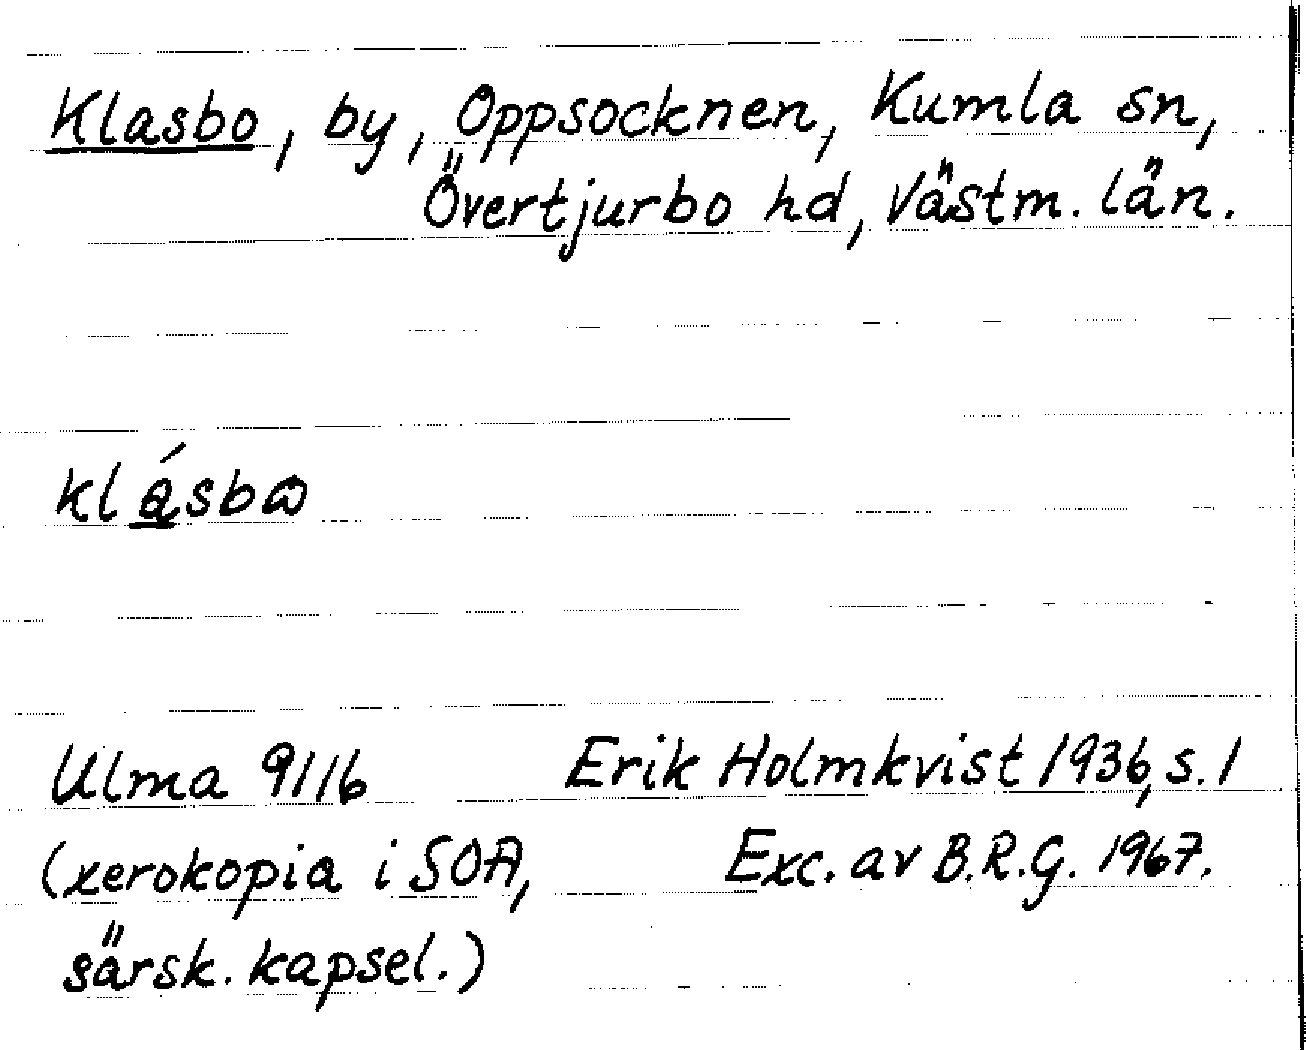 Klasbo, by, Oppsocknen, Kumla sn,
Övertjurbo hd, Västm. län.
klásbɷ
Ulma 9116 Erik Holmkvist 1936, s. 1
(xerokopia i SOA, Exc. av B.R.G. 1967.
särsk. kapsel.)